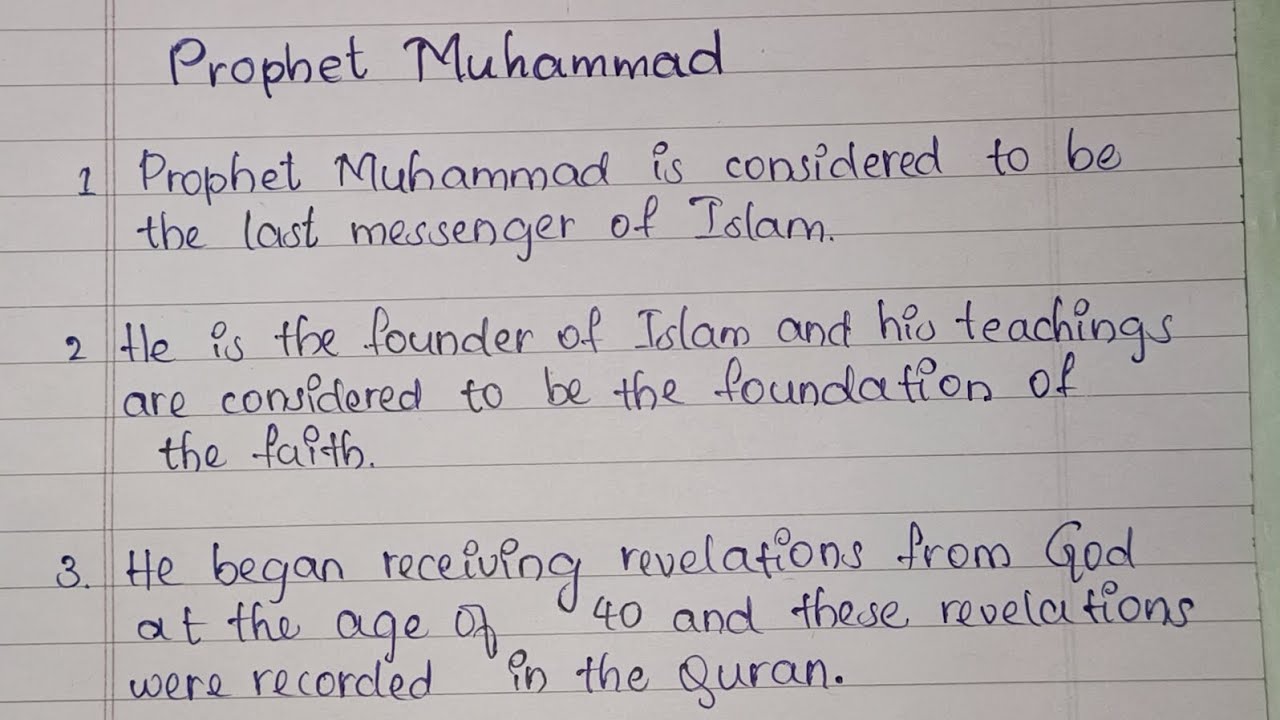 Prophet Muhammad
1 Prophet Muhammad is considered to be
the last messenger of Islam.
2 He is the founder of Islam and his teachings
are considered to be the foundation of
the faith.
3. He began receiving revelations from God
at the age of 40 and these revelations
were recorded in the Quran.